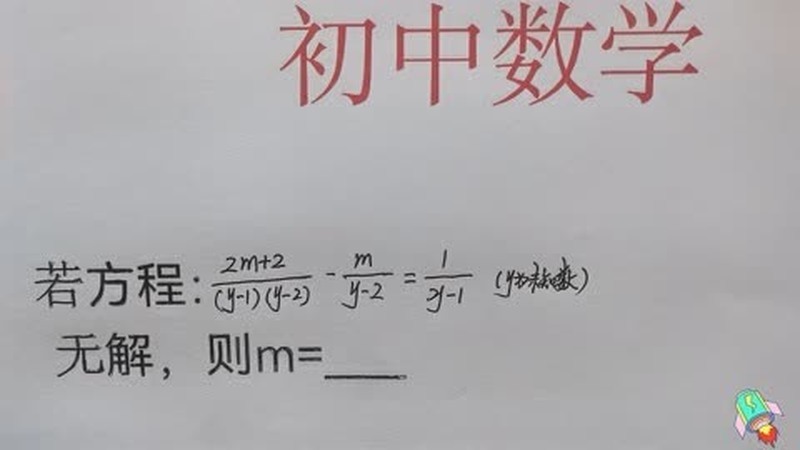 初中数学
若方程: \frac{2m+2}{(y-1)(y-2)} - \frac{m}{y-2} = \frac{1}{y-1} (y为未知数)
无解，则m=___